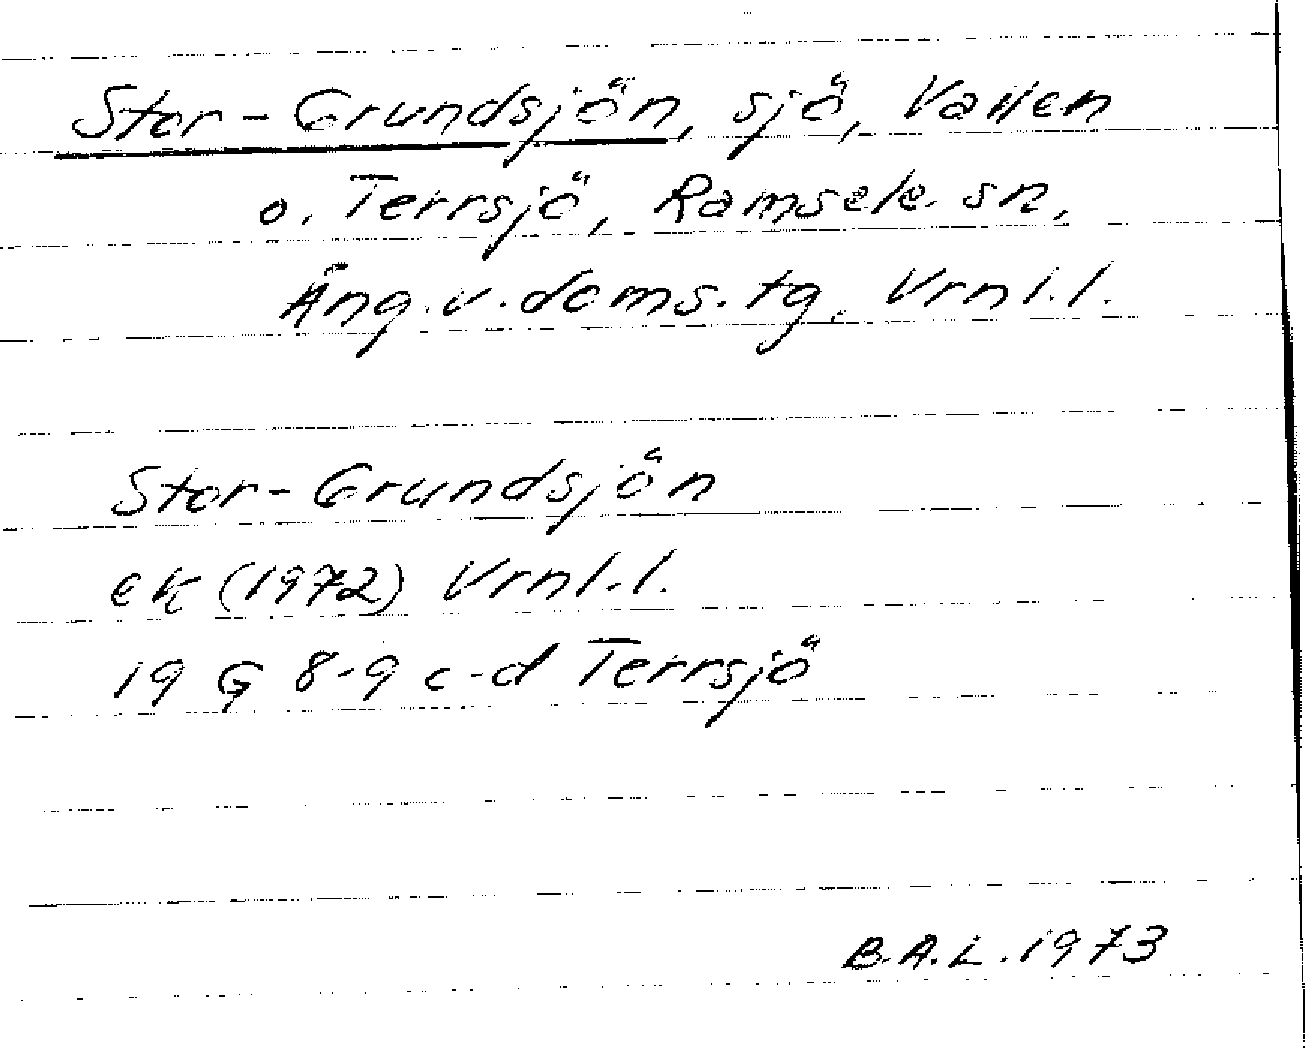 Stor-Grundsjön, sjö, Vallen
o. Terrsjö, Ramsele sn,
Ång.v.doms.tg, Vrnl.l.
Stor-Grundsjön
ek (1972) Vrnl.l.
19 G 8-9 c-d Terrsjö
B.A.L. 1973